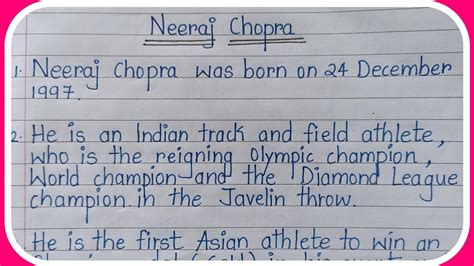 Neeraj Chopra
1. Neeraj Chopra was born on 24 December
1997.
2. He is an Indian track and field athlete,
who is the reigning Olympic champion,
World champion and the Diamond League
champion in the Javelin throw.
He is the first Asian athlete to win an